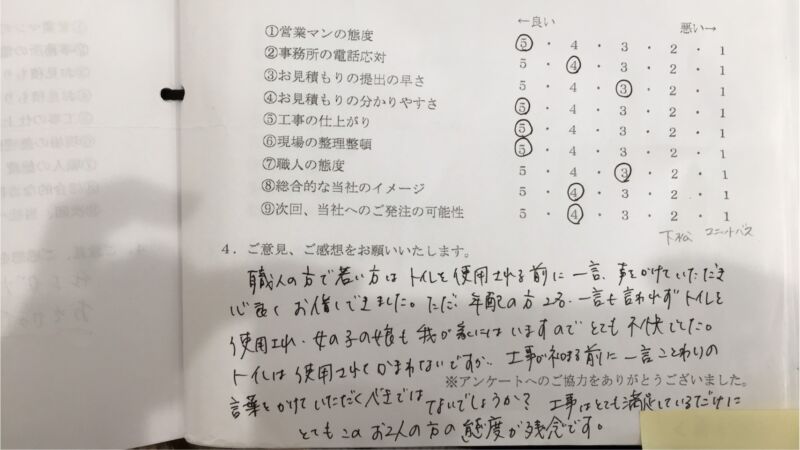 ←良い 悪い→
①営業マンの態度 5・4・3・2・1
②事務所の電話応対 5・4・3・2・1
③お見積もりの提出の早さ 5・4・3・2・1
④お見積もりの分かりやすさ 5・4・3・2・1
⑤工事の仕上がり 5・4・3・2・1
⑥現場の整理整頓 5・4・3・2・1
⑦職人の態度 5・4・3・2・1
⑧総合的な当社のイメージ 5・4・3・2・1
⑨次回、当社へのご発注の可能性 5・4・3・2・1
下松 ユニットバス
4．ご意見、ご感想をお願いいたします。
職人の方で若い方はトイレを使用される前に一言、声をかけていただき
心良く お借しできました。ただ、年配の方2名、一言も言われずトイレを
使用され、女の子の娘も我が家にはいますのでとても不快でした。
トイレは使用されてかまわないですが、工事が初まる前に一言ことわりの
※アンケートへのご協力をありがとうございました。
言葉をかけていただくべきではないでしょうか？ 工事はとても満足しているだけに
とてもこのお2人の方の態度が残念です。